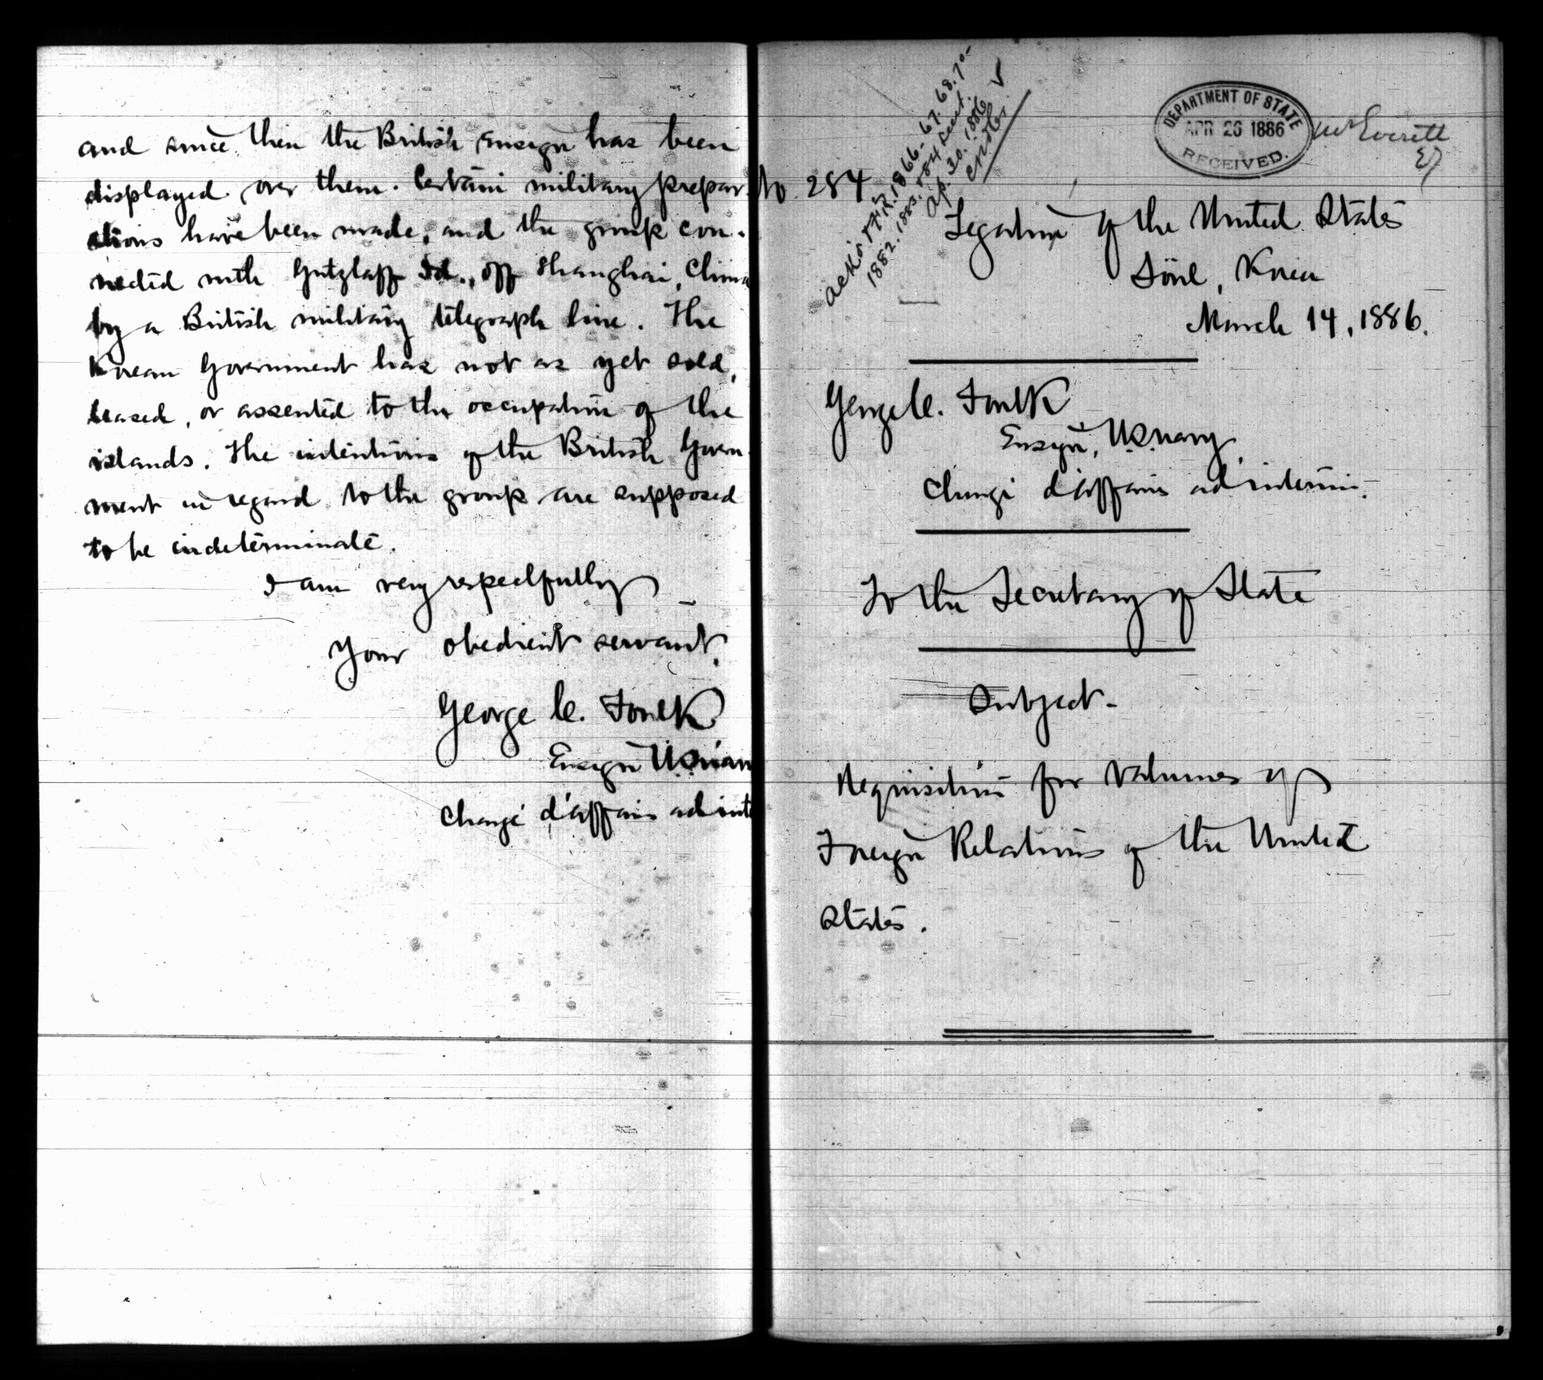 and since then the British Ensign has been
displayed over them. Certain military prepar-
ations have been made, and the group con-
nected with Gutzlaff Id., off Shanghai, China
by a British military telegraph line. The
Korean Government has not as yet sold,
leased, or assented to the occupation of the
islands. The intentions of the British Govern-
ment in regard to the group are supposed
to be indeterminate.
I am very respectfully
Your obedient servant,
George C. Foulk
Ensign U.S. Nav
Chargé d'affaires ad int
No. 284
Ack'd & F.R. 1866-67.68.70-
1882.1883.1884 sent.
Ap. 30. 1886 ✓
DEPARTMENT OF STATE
APR 26 1886
RECEIVED.
Mr Everett
Legation of the United States
Söul, Korea
March 14, 1886.
George C. Foulk
Ensign, U.S. Navy
Chargé d'affaires ad interim.
To the Secretary of State
Subject-
Requisition for volumes of
Foreign Relations of the United
States.